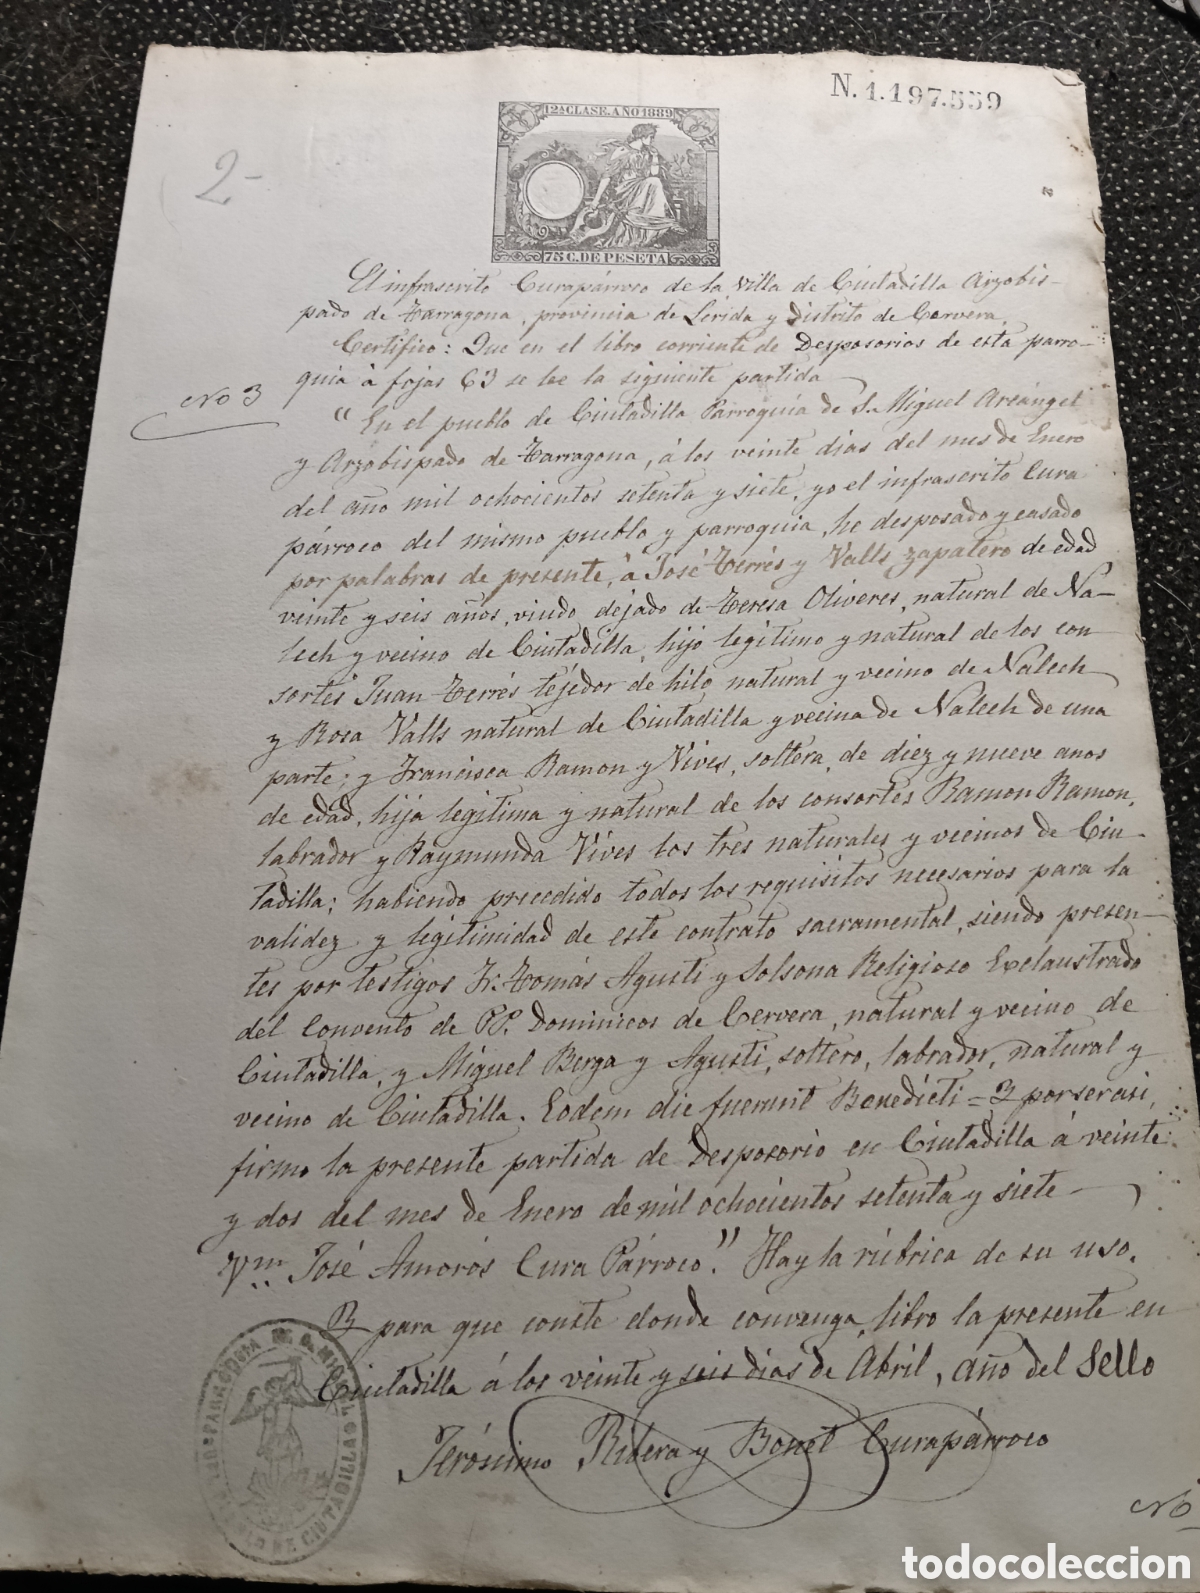 N.1.197.559
12ª CLASE. AÑO 1889
75 C. DE PESETA
2-
El infrascrito Curapárroco de la villa de Ciutadilla Arzobis-
pado de Tarragona, provincia de Lérida y distrito de Cervera,
Certifico: Que en el libro corriente de Desposorios de esta parro-
quia á fojas 63 se lee la siguiente partida
No 3
"En el pueblo de Ciutadilla Parroquia de S. Miguel Arcángel
y Arzobispado de Tarragona, á los veinte dias del mes de Enero
del año mil ochocientos setenta y siete, yo el infrascrito Cura
párroco del mismo pueblo y parroquia, he desposado y casado
por palabras de presente, á José Terrés y Valls zapatero de edad
veinte y seis años, viudo dejado de Teresa Oliveres, natural de Na-
lech y vecino de Ciutadilla, hijo legitimo y natural de los con
sortes Juan Terrés tejedor de hilo natural y vecino de Nalech
y Rosa Valls natural de Ciutadilla y vecina de Nalech de una
parte; y Francisca Ramon y Vives, soltera, de diez y nueve anos
de edad, hija legitima y natural de los consortes Ramon Ramon,
labrador y Raymunda Vives los tres naturales y vecinos de Ciu-
tadilla; habiendo precedido todos los requisitos necesarios para la
validez y legitimidad de este contrato sacramental, siendo presen-
tes por testigos Fr. Tomás Agusti y Solsona Religioso Exclaustrado
del Convento de PP. Dominicos de Cervera, natural y vecino de
Ciutadilla, y Miguel Berga y Agusti, soltero, labrador, natural y
vecino de Ciutadilla. Eodem die fuerunt Benedicti = Y por ser asi,
firmo la presente partida de Desposorio en Ciutadilla á veinte
y dos del mes de Enero de mil ochocientos setenta y siete-
José Amorós Cura Párroco." Hay la rúbrica de su uso.
Y para que conste donde convenga, libro la presente en
Ciutadilla á los veinte y seis dias de Abril, año del Sello
Jerónimo Ribera y Bonet Curapárroco
No
PARROQUIA DE S. MIGUEL
DE CIUTADILLA
todocoleccion